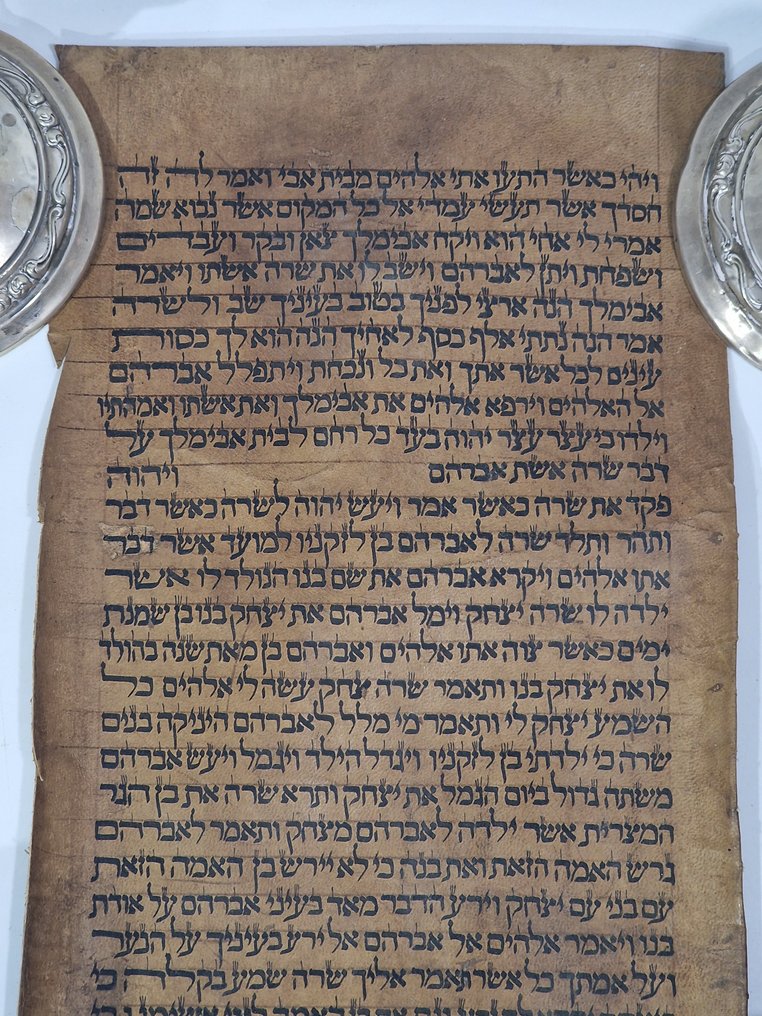 ויהי כאשר התעו אתי אלהים מבית אבי ואמר לה זה
חסדך אשר תעשי עמדי אל כל המקום אשר נבוא שמה
אמרי לי אחי הוא ויקח אבימלך צאן ובקר ועבדים
ושפחת ויתן לאברהם וישב לו את שרה אשתו ויאמר
אבימלך הנה ארצי לפניך בטוב בעיניך שב ולשרה
אמר הנה נתתי אלף כסף לאחיך הנה הוא לך כסות
עינים לכל אשר אתך ואת כל ונכחת ויתפלל אברהם
אל האלהים וירפא אלהים את אבימלך ואת אשתו ואמהתיו
וילדו כי עצר עצר יהוה בעד כל רחם לבית אבימלך על
דבר שרה אשת אברהם ויהוה
פקד את שרה כאשר אמר ויעש יהוה לשרה כאשר דבר
ותהר ותלד שרה לאברהם בן לזקניו למועד אשר דבר
אתו אלהים ויקרא אברהם את שם בנו הנולד לו אשר
ילדה לו שרה יצחק וימל אברהם את יצחק בנו בן שמנת
ימים כאשר צוה אתו אלהים ואברהם בן מאת שנה בהולד
לו את יצחק בנו ותאמר שרה צחק עשה לי אלהים כל
השמע יצחק לי ותאמר מי מלל לאברהם היניקה בנים
שרה כי ילדתי בן לזקניו ויגדל הילד ויגמל ויעש אברהם
משתה גדול ביום הגמל את יצחק ותרא שרה את בן הגר
המצרית אשר ילדה לאברהם מצחק ותאמר לאברהם
גרש האמה הזאת ואת בנה כי לא יירש בן האמה הזאת
עם בני עם יצחק וירע הדבר מאד בעיני אברהם על אודת
בנו ויאמר אלהים אל אברהם אל ירע בעיניך על הנער
ועל אמתך כל אשר תאמר אליך שרה שמע בקלה כי